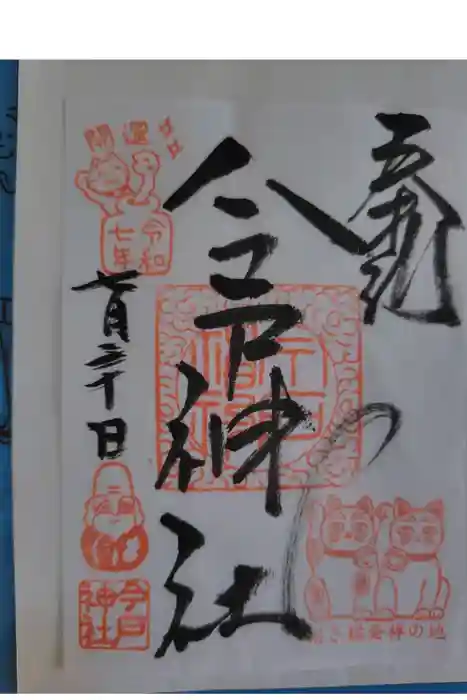 奉拝
今戸神社
開運
令和
七年
七月三十日
今戸
神社
招き猫発祥の地